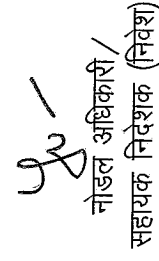 नोडल अधिकारी/
सहायक निदेशक (निवेश)